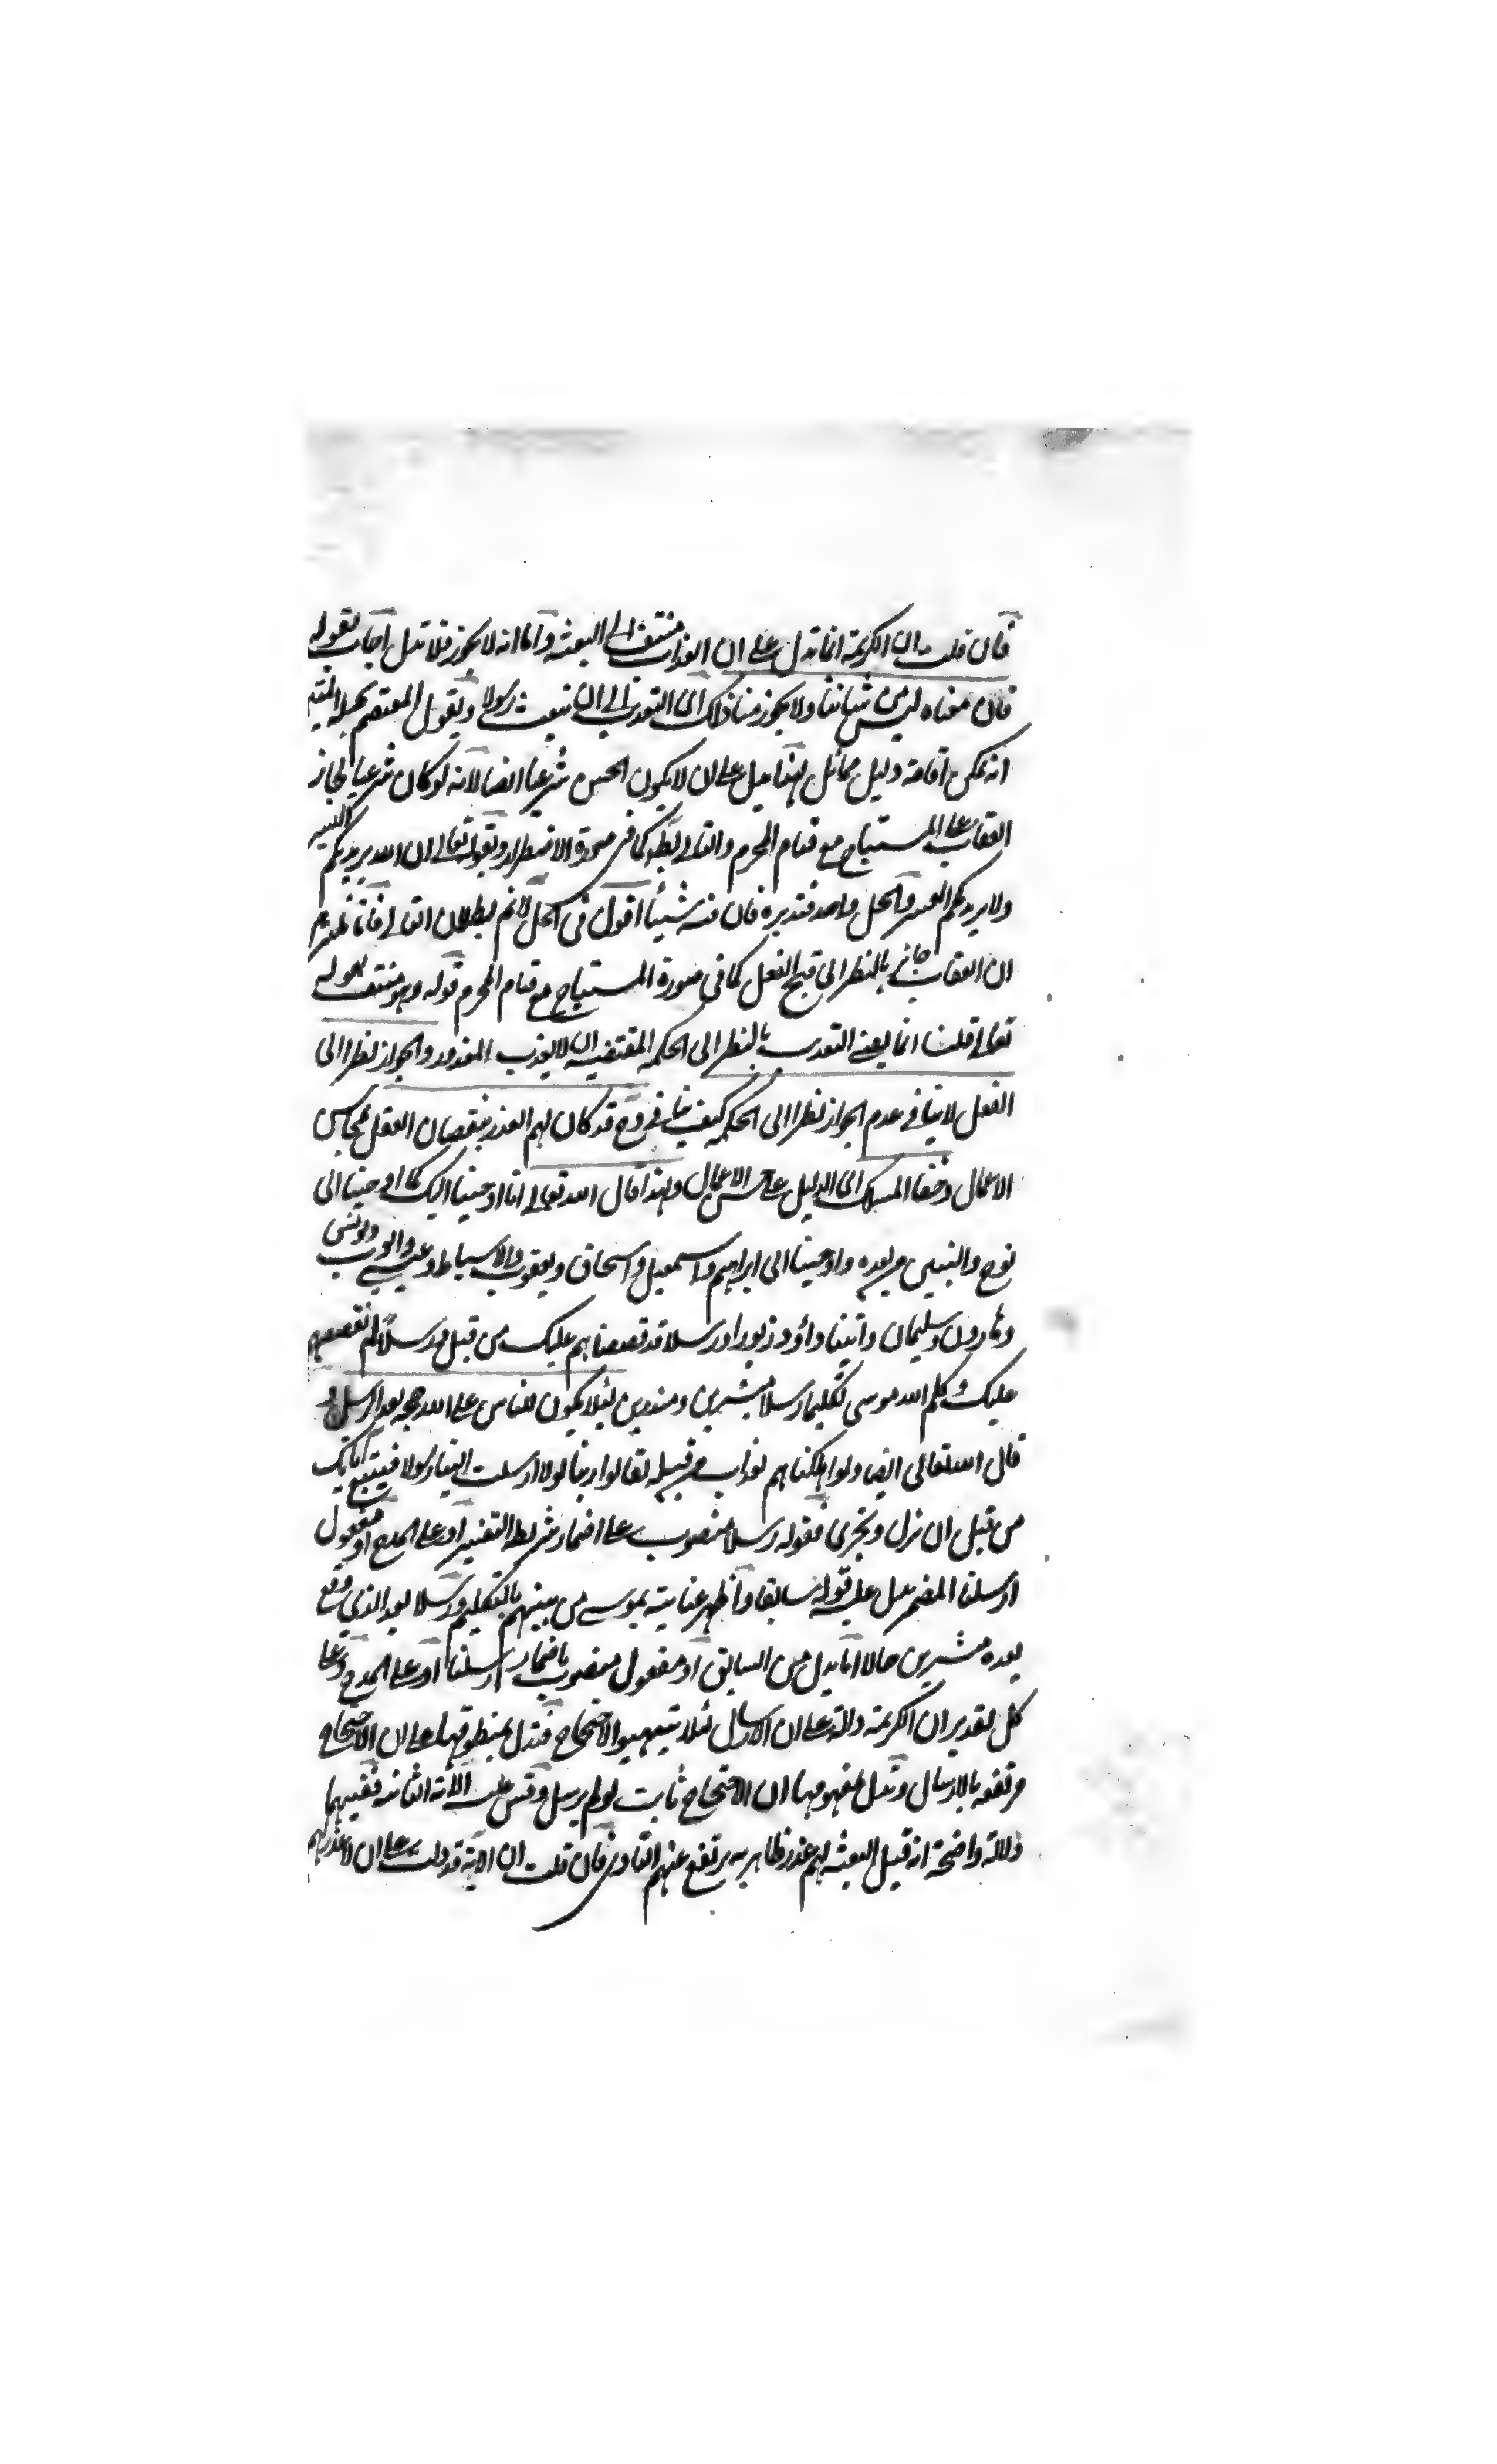 فان قلت ان الكريمة انما تدل على ان العذاب منتف الى البعثة واما انه لا يجوز فلا تدل اجاب بقوله
فان معناه ليس من شاننا ولا يجوز منا ذلك اى التعذيب الى ان نبعث رسولا ويقول المعتصم بحبله المتين
انه يمكن اقامة دليل مماثل لهذا يدل على ان لا يكون الحسن شرعيا ايضا لانه لو كان شرعيا لجاز
العقاب على المستباح مع قيام المحرم والتالى بط كما فى صورة الاضطرار وبقوله تعالى ان الله يريد بكم اليسر
ولا يريد بكم العسر والحل واحد فتدبره فان فيه شيئا اقول فى الحل لا نم بطلان التالى فانا نلتزم
ان العقاب جائز بالنظر الى قبح الفعل كما فى صورة المستباح مع قيام المحرم قوله وهو منتف بقوله
تعالى قلنا انما يعنى التعذيب بالنظر الى الحكمة المقتضية ان لا يعذب المعذور والجواز نظرا الى
الفعل لا ينافى عدم الجواز نظرا الى الحكمة كيف ينافى وح قد كان لهم العذر بنقصان العقل بمحاسن
الاعمال وخفا المسلك اى الدليل على حسن الاعمال ولهذا قال الله تعالى انا اوحينا اليك كما اوحينا الى
نوح والنبيين من بعده واوحينا الى ابراهيم واسمعيل واسحاق ويعقوب والاسباط وعيسى وايوب ويونس
وهارون وسليمان واتينا داؤد زبورا ورسلا قد قصصناهم عليك من قبل ورسلا لم نقصصهم
عليك وكلم الله موسى تكليما رسلا مبشرين ومنذرين لئلا يكون للناس على الله حجة بعد الرسل و
قال الله تعالى ايضا ولو اهلكناهم بعذاب من قبله لقالوا ربنا لولا ارسلت الينا رسولا فنتبع آياتك
من قبل ان نزل ونخزى فقوله رسلا منصوب على اضمار شريطة التفسير او على المدح او مفعول
ارسلنا المضمر يدل عليه قوله سابقا واظهر عناية بموسى من بينهم بالتكليم ورسلا بعد الذي وقع
بعده مبشرين حالا اما بدل من السابق او مفعول منصوب باضمار ارسلنا او على المدح وعلى
كل تقدير ان الكريمة دالة على ان الارسال لئلا الاحتجاج فتدل بمنطوقها على ان الاحتجاج
مرتفع بالارسال وتدل بمفهومها ان الاحتجاج ثابت لو لم يرسل وقس عليه الآية الثانية ففيهما
دلالة واضحة انه قبل البعثة لهم عذر ظاهر به يرتفع عنهم التاذى فان قلت ان الآية قد دلت على ان لا عذر لهم